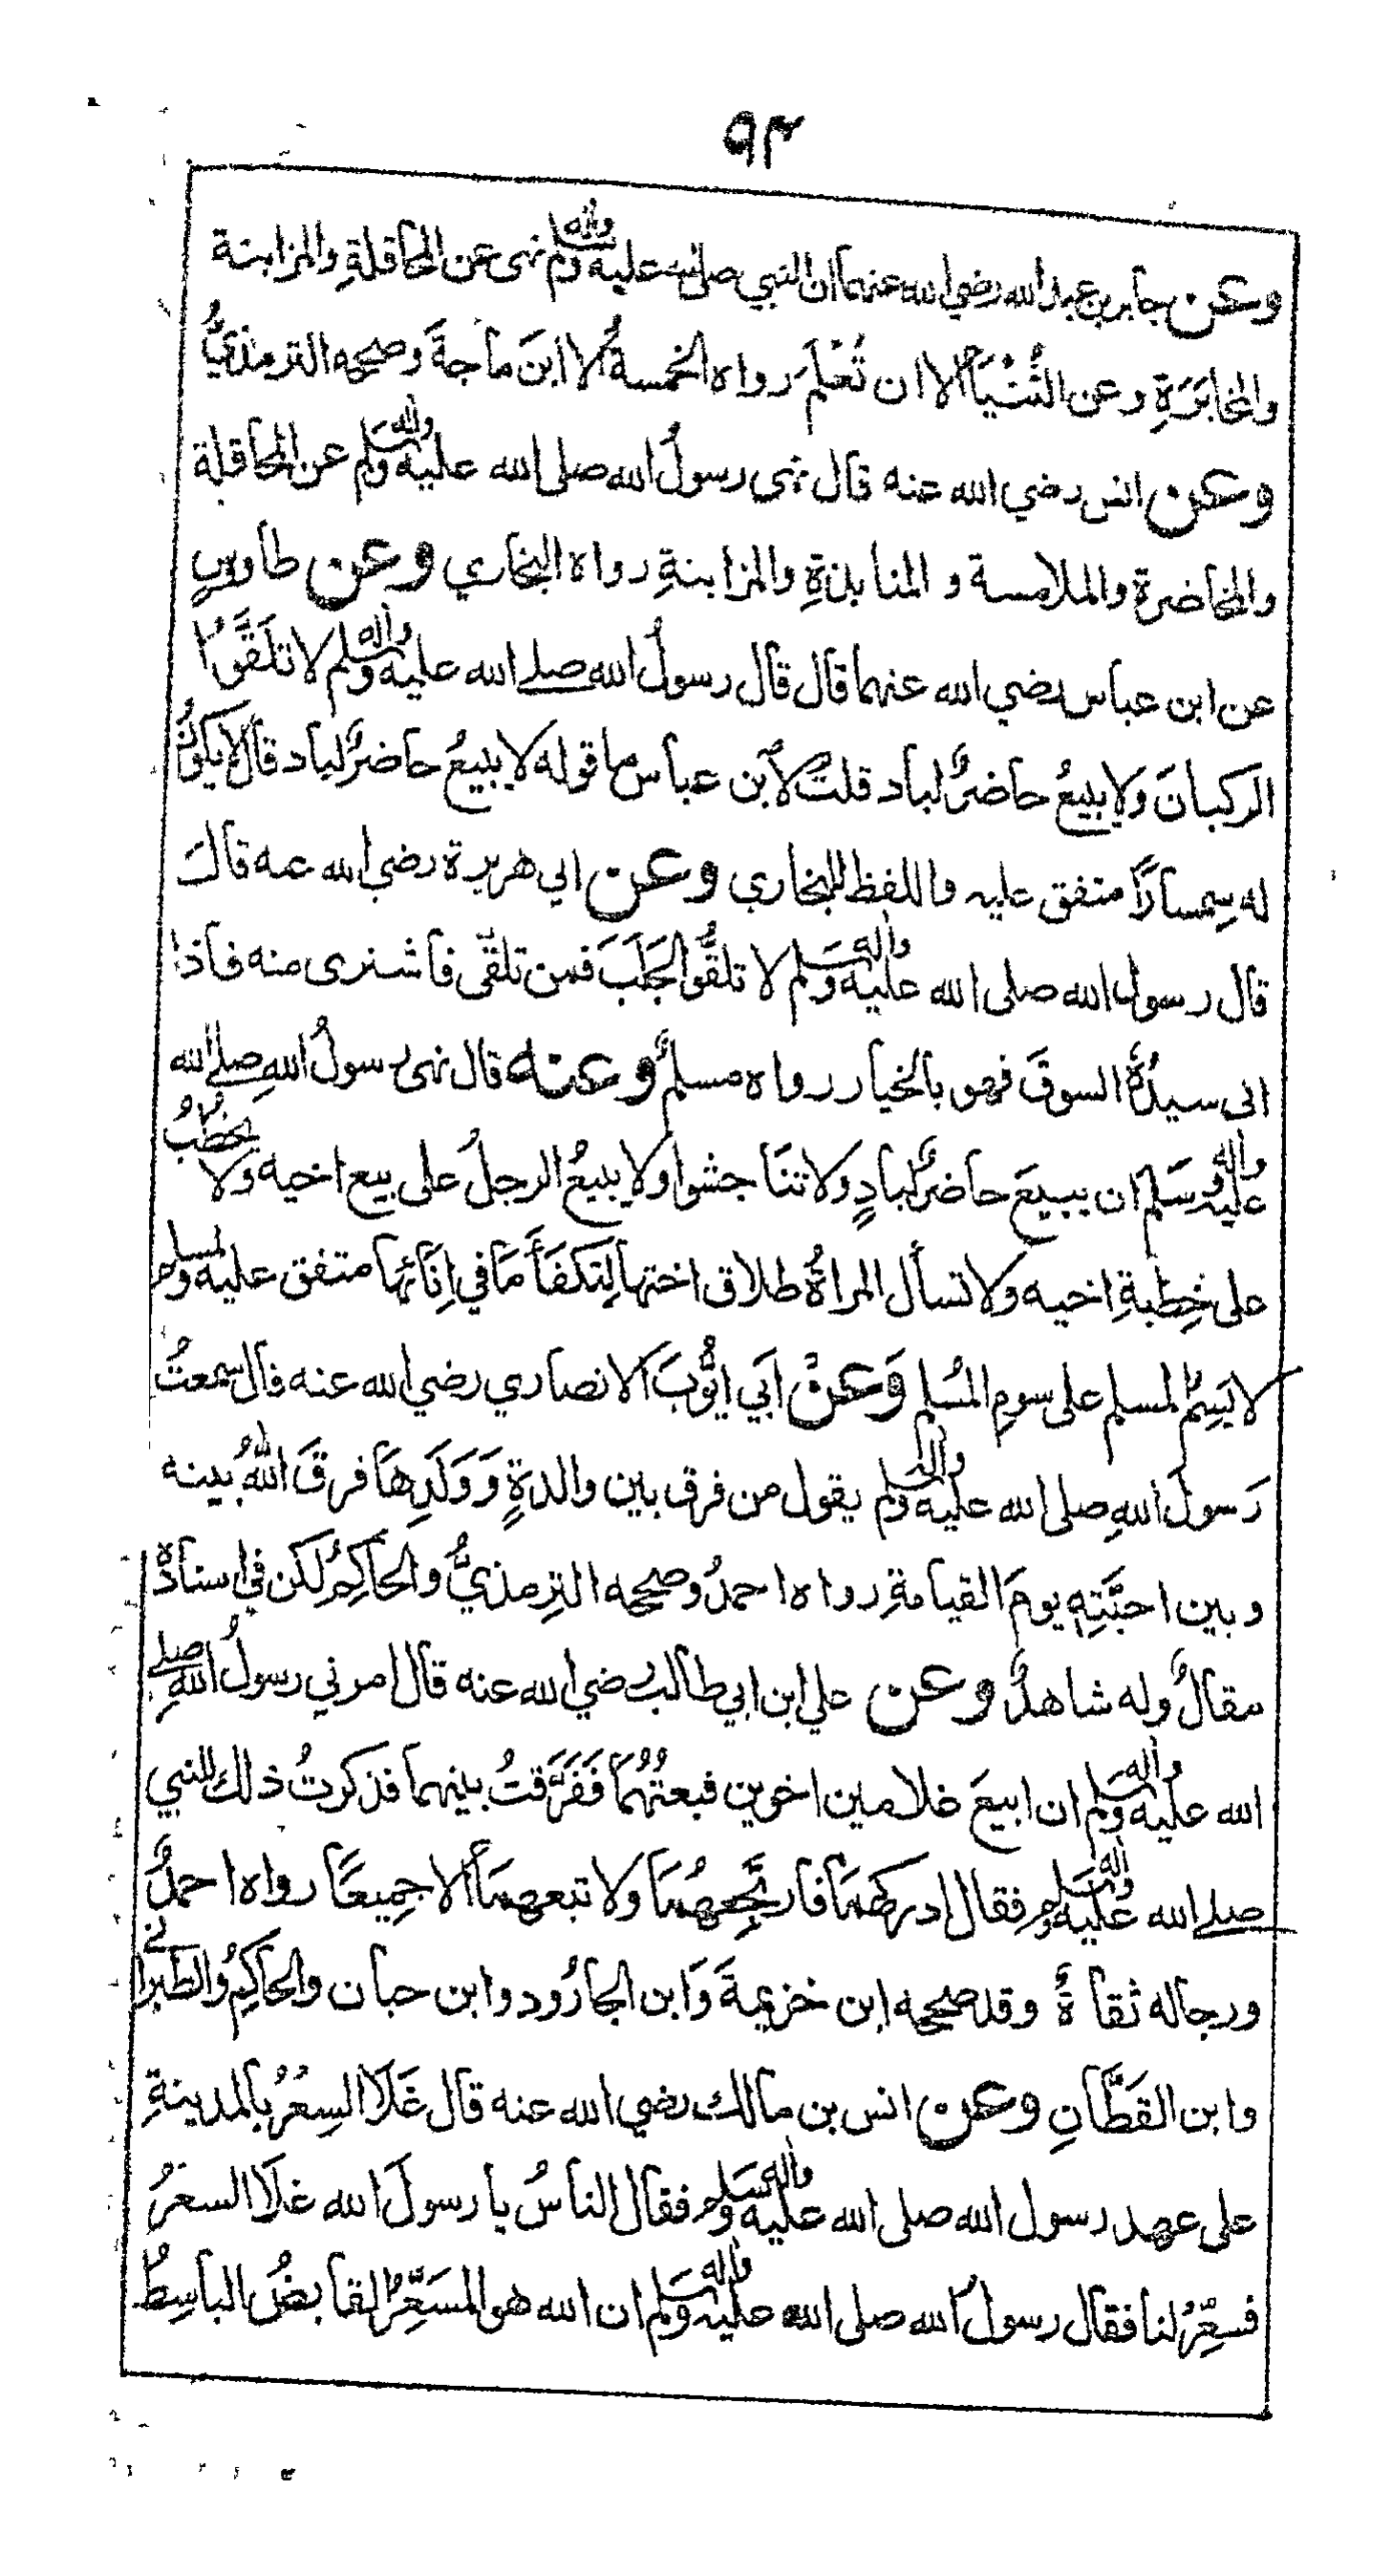 ٩٣
وعن جابر بن عبد الله رضي الله عنهما ان النبي صلى الله عليه واله وسلم نهى عن المحاقلةِ والمزابنة
والمخابَرَةِ وعن الثُّنْيَا الا ان تُعْلَمَ رواه الخمسةُ الا ابنَ ماجةَ وصححه الترمذيُّ
وعن انس رضي الله عنه قال نهى رسولُ الله صلى الله عليه واله وسلم عن المحاقلة
والمخاضرة والملامسة و المنابذةِ والمزابنةِ رواه البخاري وعن طاوسٍ
عن ابن عباس رضي الله عنهما قال قال رسولُ الله صلى الله عليه واله وسلم لا تلَقَّوُا
الركبانَ ولا يبيعُ حاضرٌ لباد قلتُ لابن عباس ما قوله لا يبيعُ حاضرٌ لباد قال لا يكونُ
له سِمسارًا متفق عليه واللفظ للبخاري وعن ابي هريرة رضي الله عنه قال
قال رسول الله صلى الله عليه واله وسلم لا تلقَّوُا الجَلَبَ فمن تلقّى فاشترى منه فاذا
اتى سيدُهُ السوقَ فهو بالخيار رواه مسلمٌ وعنه قال نهى رسولُ اللهِ صلى الله
عليه واله وسَلم ان يبيعَ حاضرٌ لبادٍ ولا تنَاجشوا ولا يبيعُ الرجلُ على بيع اخيه ولا يخطُبُ
على خِطْبةِ اخيه ولا تسأل المراةُ طلاق اختها لِتَكفَأَ مَا في اِنَائها متفق عليه ولمسلم
لا يَسِمُ المسلم على سومِ المسُلم وَعَنْ اَبي ايّوبَ الانصاري رضي الله عنه قال سمعتُ
رَسولَ اللهِ صلى الله عليه واله وسلم يقول من فرق بين والدةٍ وَوَلَدِهَا فرقَ اللهُ بينه
وبين احبَّتِهِ يومَ القيامةِ رواه احمدُ وصححه الترمذيُّ والحاكمُ لكن في اسنادهِ
مقالٌ وله شاهدٌ وعن علي ابن ابي طالب رضي الله عنه قال امرني رسولُ اللهِ صلى
الله عليه واله وسلم ان ابيعَ غلامين اخوين فبعتُهُمَا فَفَرَّقتُ بينهما فذكرتُ ذلك للنبي
صلى الله عليه واله وسلم فقال ادركهمَا فارتَجِعهُمَا ولا تبعهمَا الا جمِيعًا رواه احمدُ
ورجاله ثقاةٌ وقد صححه ابن خزيمةَ وَابن الجارُود وابن حبان والحاكِمُ والطَبَراني
وابن القَطَّانِ وعن انس بن مالك رضي الله عنه قال غَلَا السِعْرُ بالمدينةِ
على عهد رسول الله صلى الله عليه واله وسلم فقال الناسُ يا رسولَ الله غلَا السعرُ
فسعِّرْ لنا فقال رسولُ الله صلى الله عليه واله وسلم ان الله هو المسَعِّرُ القابضُ الباسِطُ